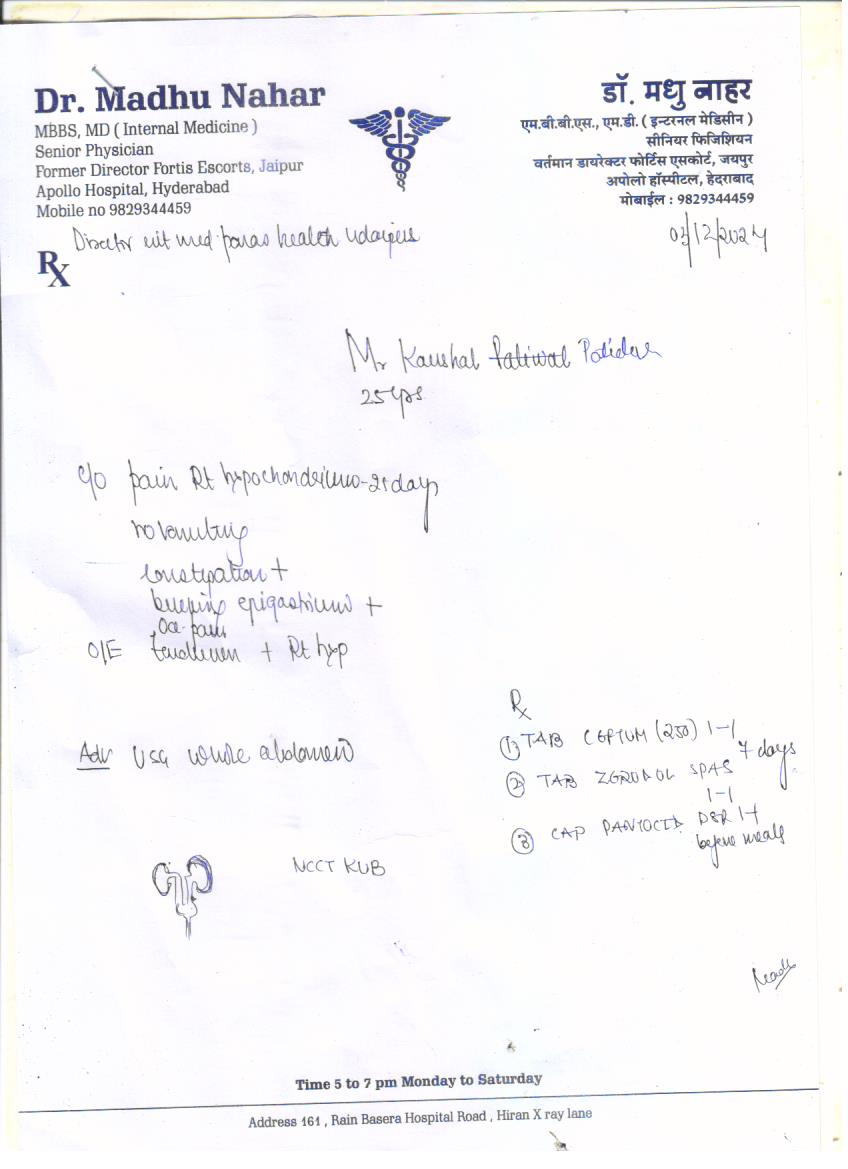 Dr. Madhu Nahar
MBBS, MD ( Internal Medicine )
Senior Physician
Former Director Fortis Escorts, Jaipur
Apollo Hospital, Hyderabad
Mobile no 9829344459
डॉ. मधु नाहर
एम.बी.बी.एस., एम.डी. ( इन्टरनल मेडिसीन )
सीनियर फिजिशियन
वर्तमान डायरेक्टर फोर्टिस एसकोर्ट, जयपुर
अपोलो हॉस्पीटल, हेदराबाद
मोबाईल : 9829344459
Director med paras health udaipur
/12/2024
Rx
Mr Kaushal Paliwal Patidar
25 yrs
c/o pain Rt hypochondrium - days
no vomiting
constipation +
epigastrium +
occ pain
O/E + Rt hyp
Adv USG whole abdomen
NCCT KUB
Rx
① TAB CEFTUM (250) 1-1
7 days
② TAB ZERODOL SPAS
1-1
③ CAP PANTOCID DSR 1-1
before meals
Time 5 to 7 pm Monday to Saturday
Address 161 , Rain Basera Hospital Road , Hiran X ray lane